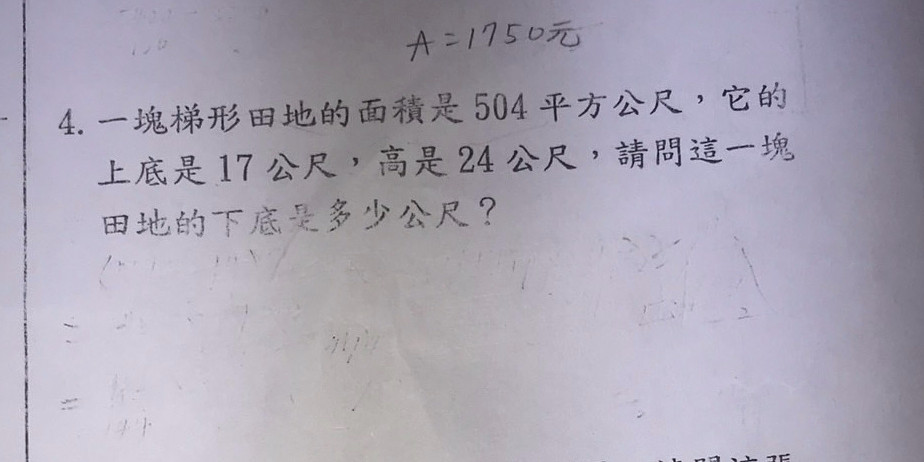 A=1750元
4. 一塊梯形田地的面積是 504 平方公尺，它的
上底是 17 公尺，高是 24 公尺，請問這一塊
田地的下底是多少公尺？